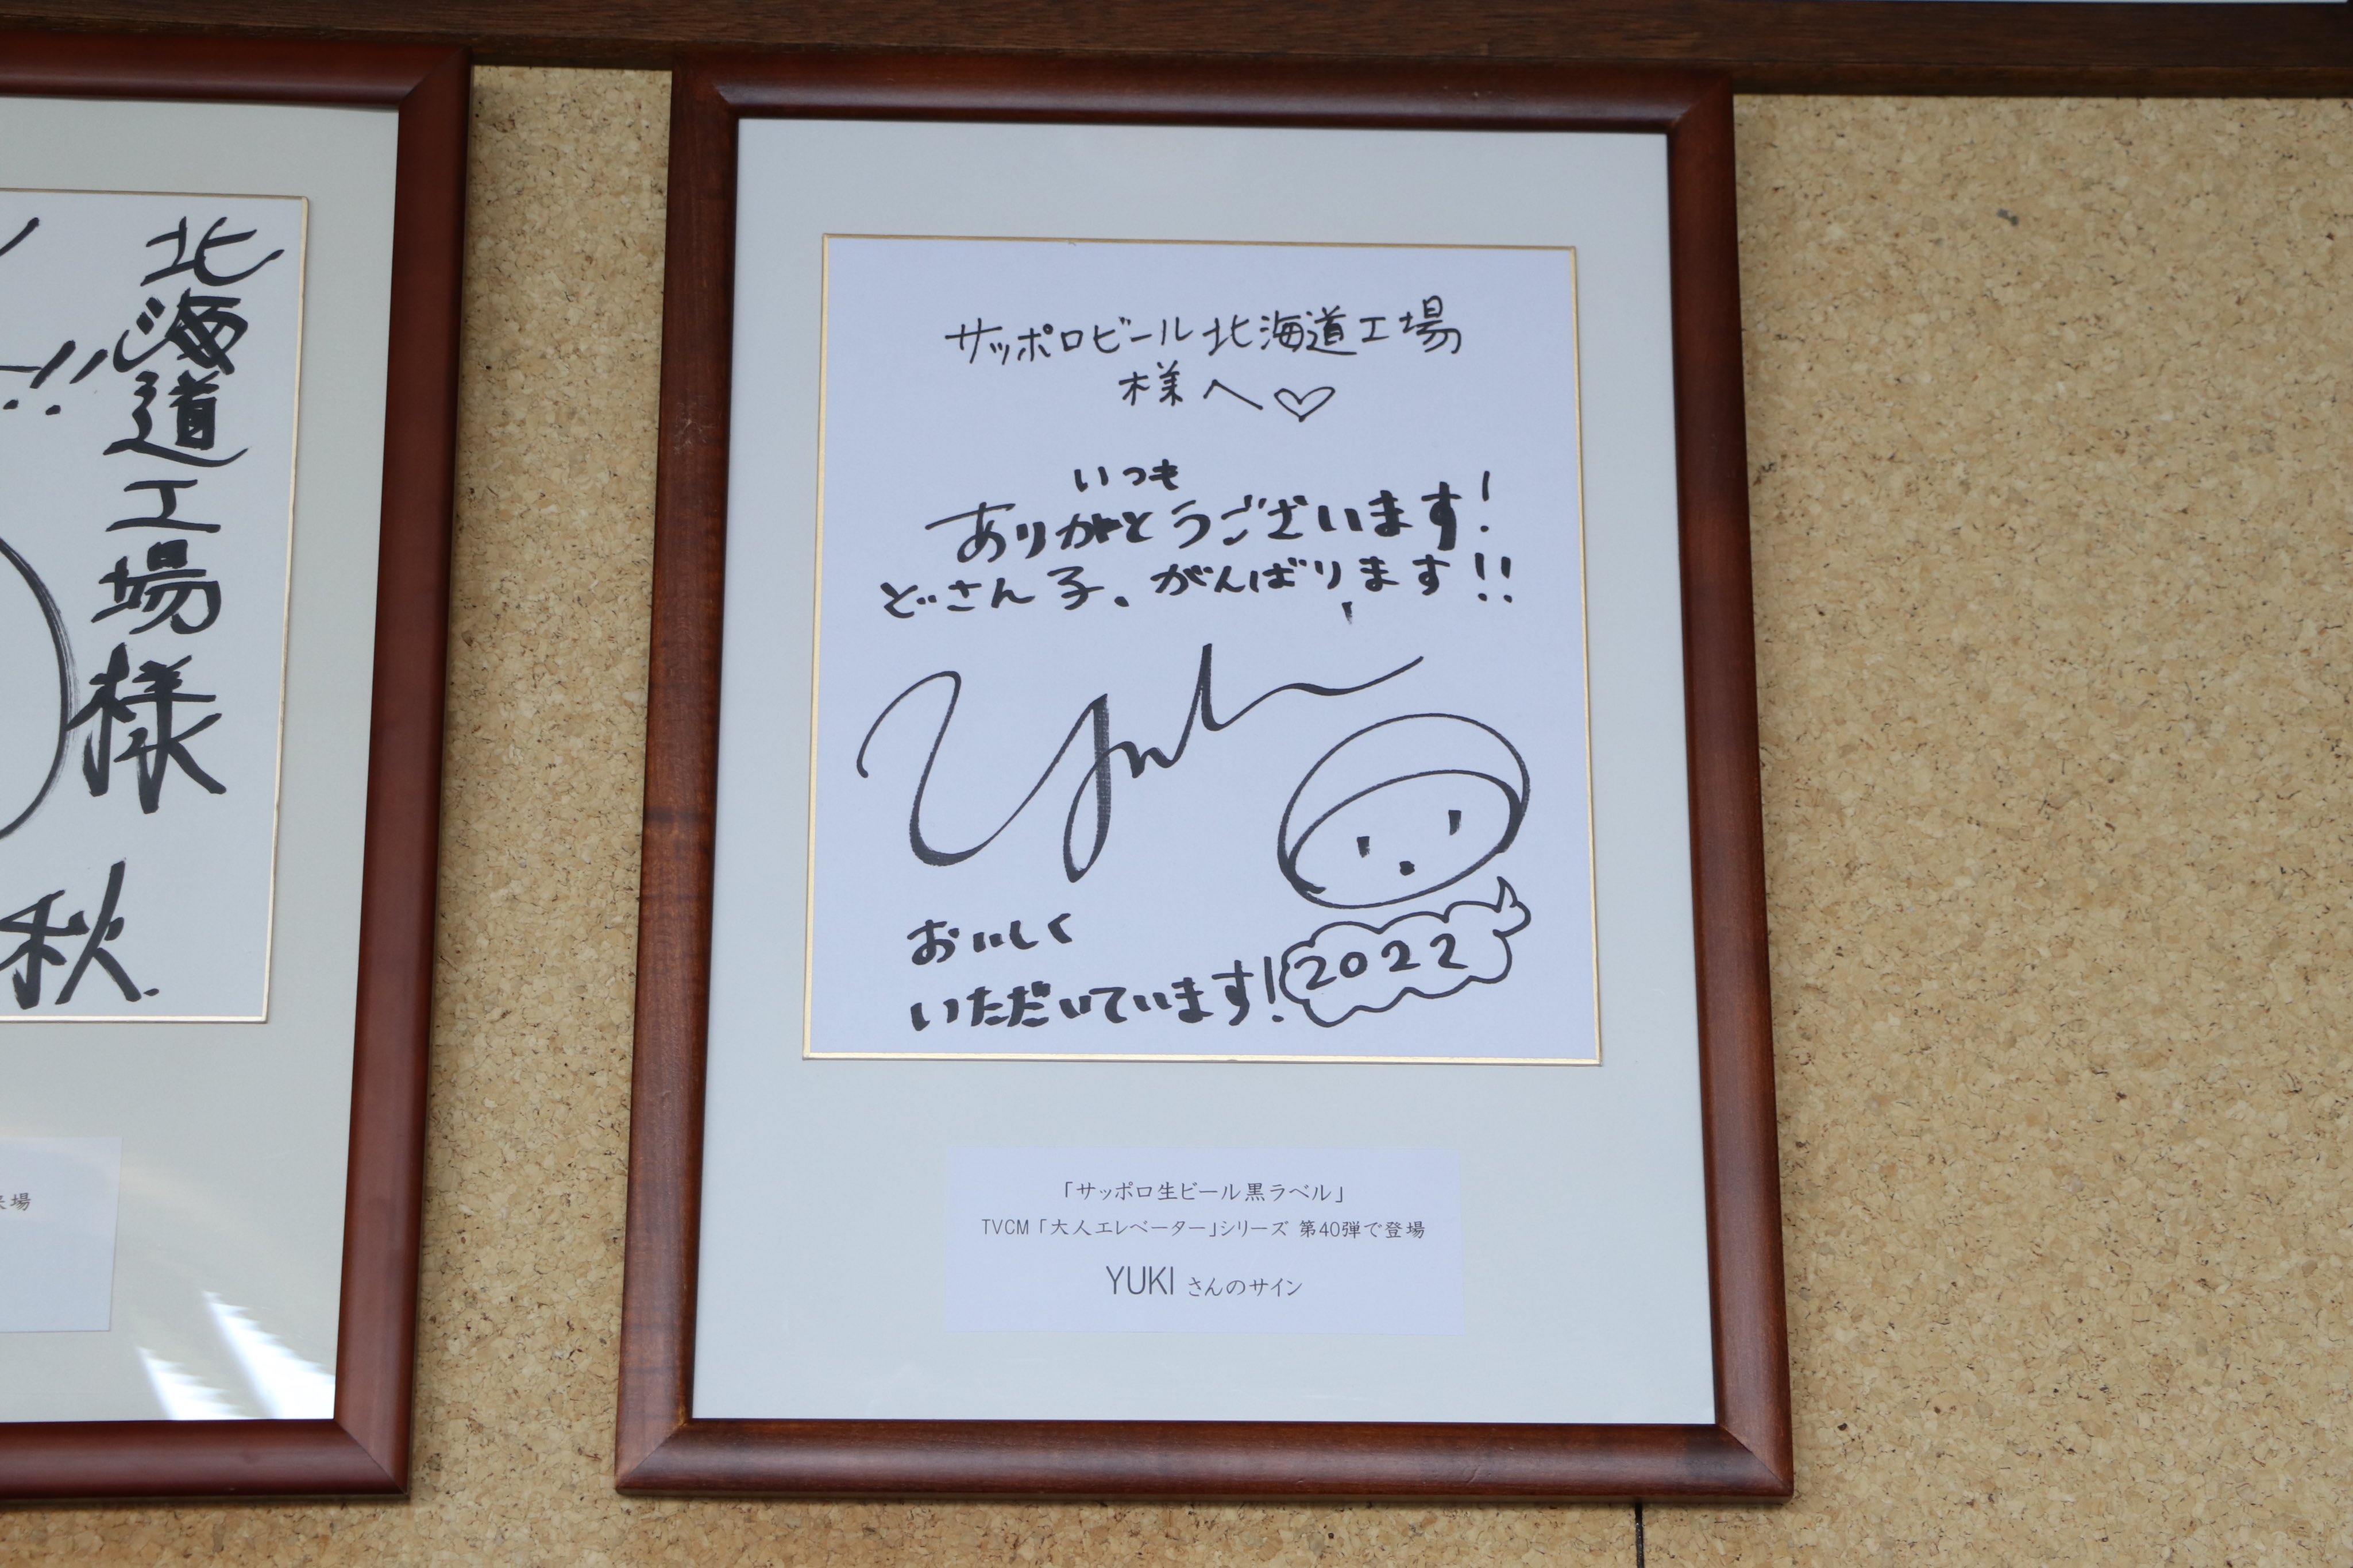 北海道工場様
!!
秋
場
サッポロビール北海道工場
様へ♡
いつも
ありがとうございます!
どさん子、がんばります!!
おいしく
いただいています!
2022
「サッポロ生ビール黒ラベル」
TVCM「大人エレベーター」シリーズ 第40弾で登場
YUKI さんのサイン